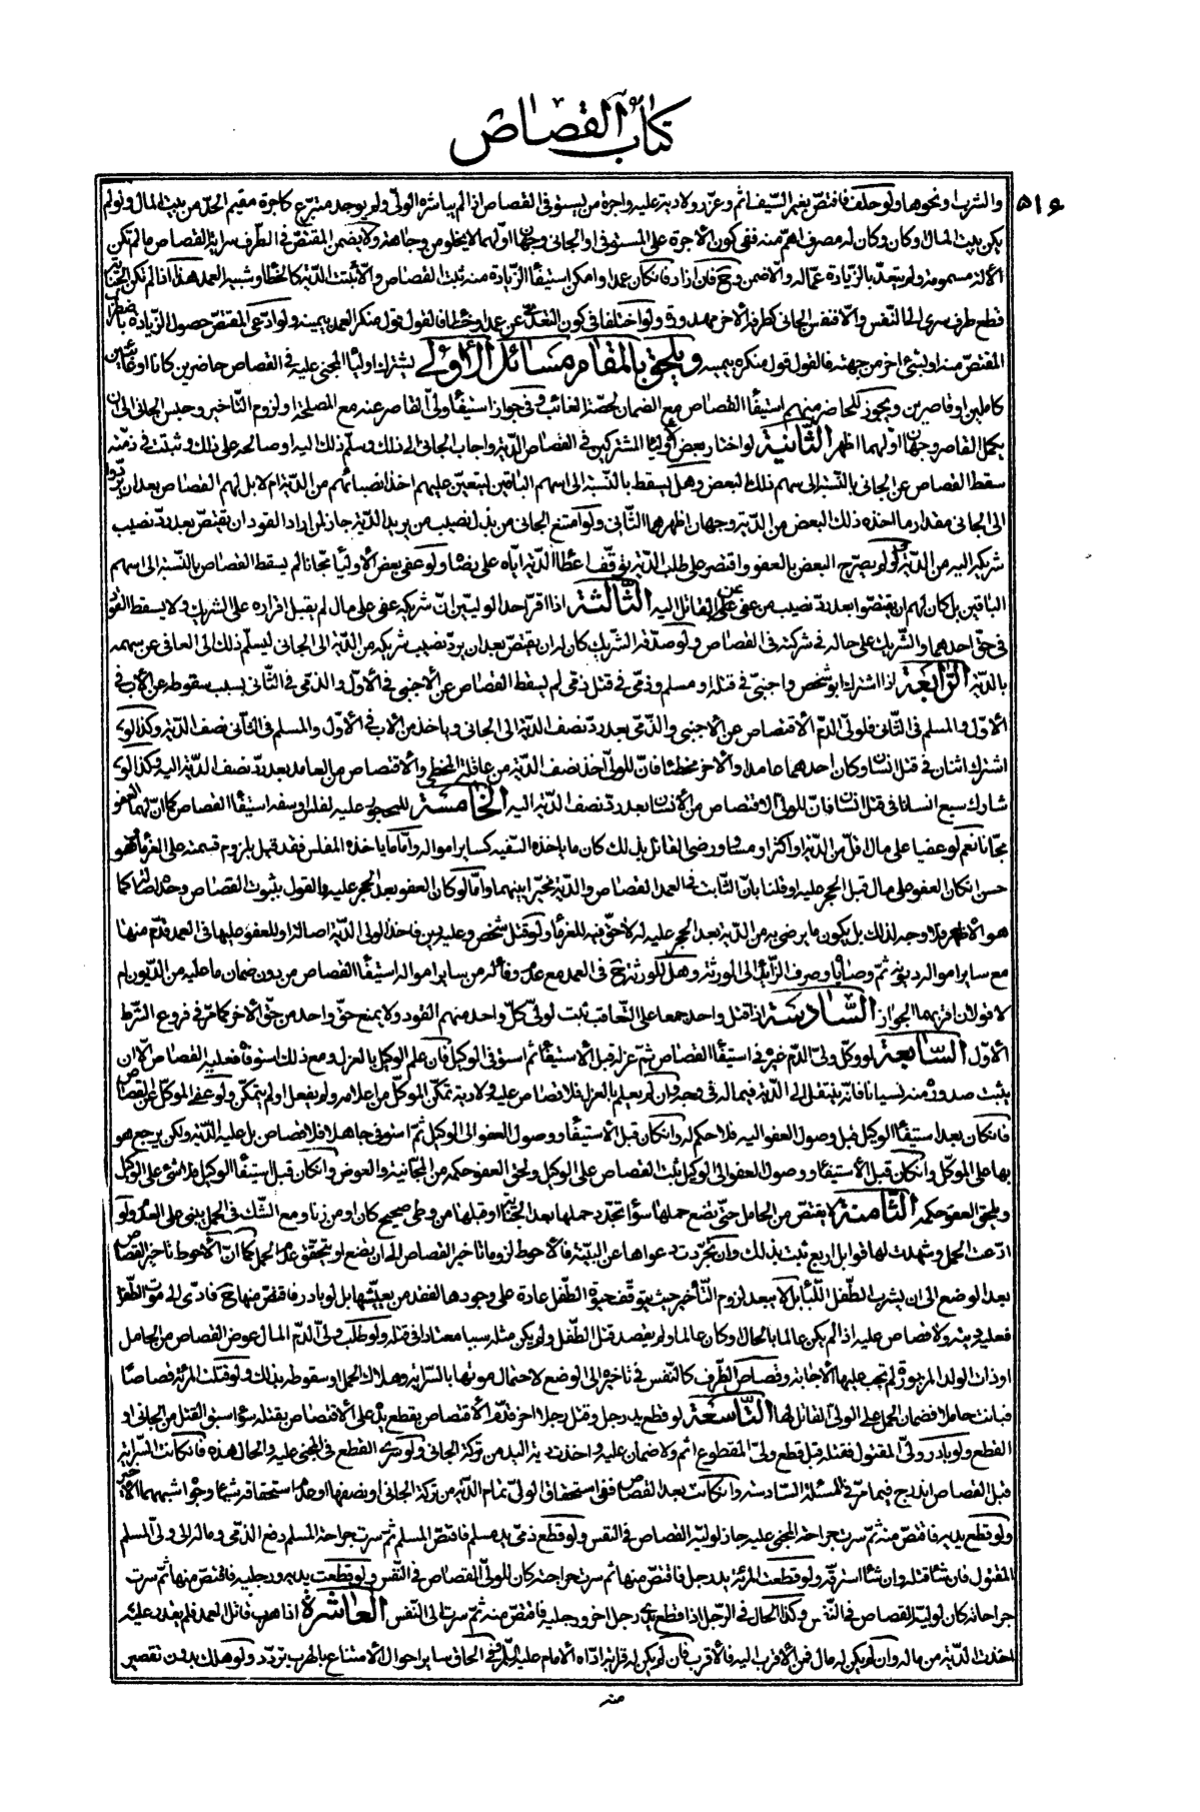 كتاب القصاص
٥١٦
والشرب ونحوها ولو خلف فاقتص بغير السيف اثم وعزر ولا دية عليه واجرة من يستوفي القصاص اذا لم يباشره الولي ولو يوجد متبرع كاجرة مقيم الحد من بيت المال ولو لم
يكن بيت المال وكان وكان له مصرف اهم منه ففي كون الاجرة على المستوفي او الجاني وجهان اولهما لا يخلو من وجاهة ولا يضمن المقتص في الطرف سراية القصاص ما لم تكن
الآلة مسمومة ولم يتعد بالزيادة عما له والا ضمن وح فان زاد فان كان عمدا وامكن استيفاء الزيادة منه ثبت القصاص والا ثبتت الدية كالخطأ وشبيه العمد هذا اذا لم تكن الجناية
قطع طرف سرى الى النفس والا فنفس الجاني كطرفه الآخر مهدورة ولو اختلفا في كون التعدي عن عمد او خطأ فالقول قول منكر العمد بيمينه ولو ادعى المقتص حصول الزيادة باضطراب
المقتص منه او بشيء آخر من جهته فالقول قول منكره بيمينه ويلحق بالمقام مسائل الاولى يشترك اولياء المجني عليه في القصاص حاضرين كانوا او غائبين
كاملين او قاصرين ويجوز للحاضر منهم استيفاء القصاص مع الضمان لحصة الغائب وفي جواز استيفاء ولي القاصر عنه مع المصلحة او لزوم التأخير وحبس الجاني الى ان
يكمل القاصر وجهان اولهما اظهر الثانية لو اختار بعض الاولياء المشتركين في القصاص الدية واجاب الجاني الى ذلك وسلم ذلك اليه او صالحه على ذلك وثبتت في ذمته
سقط القصاص عن الجاني بالنسبة الى سهم ذلك البعض وهل يسقط بالنسبة الى اسهم الباقين ليتعين عليهم اخذ انصبائهم من الدية ام لا بل لهم القصاص بعد ان يردوا
الى الجاني مقدار ما اخذه ذلك البعض من الدية وجهان اظهرهما الثاني ولو امتنع الجاني من بذل نصيب من يريد الدية جاز لمن اراد القود ان يقتص بعد رد نصيب
شريكه اليه من الدية ولو لم يصرح البعض بالعفو واقتصر على طلب الدية توقف اعطاء الدية اياه على رضا ولو عفى بعض الاولياء مجانا لم يسقط القصاص بالنسبة الى اسهم
الباقين بل كان لهم ان يقتصوا بعد رد نصيب من عفى عن القاتل اليه الثالثة اذا اقر احد الوليين ان شريكه عفى على مال لم يقبل اقراره على الشريك ولا يسقط القود
في حق احدهما والشريك على حاله في شركته في القصاص ولو صدقه الشريك كان له ان يقتص بعد ان يرد نصيب شريكه من الدية الى الجاني ليسلم ذلك الى العافي عن سهمه
بالدية الرابعة اذا اشترك ابو شخص واجنبي في قتله او مسلم وذمي في قتل ذمي لم يسقط القصاص عن الاجنبي في الاول والذمي في الثاني بسبب سقوطه عن الاب في
الاول والمسلم في الثاني فلولي الدم الاقتصاص عن الاجنبي والذمي بعد رد نصف الدية الى الجاني وياخذ من الاب في الاول والمسلم في الثاني نصف الدية وكذا لو
اشترك اثنان في قتل انسان وكان احدهما عامدا والآخر مخطئا فان للولي اخذ نصف الدية من عاقلة المخطي والاقتصاص من العامد بعد رد نصف الدية اليه وكذا لو
شارك سبع انسانا في قتل انسان فان للولي الاقتصاص من الانسان بعد رد نصف الدية اليه الخامسة للمحجور عليه لفلس او سفه استيفاء القصاص كما ان لهما العفو
مجانا نعم لو عفيا على مال اقل من الدية او اكثر او مساو ورضي القاتل بذلك كان ما ياخذه السفيه كساير امواله واما ما ياخذه المفلس فقد قيل بلزوم قسمته على الغرماء وهو
حسن ان كان العفو على مال قبل الحجر عليه او قلنا بان الثابت في العمد القصاص والدية مخيرا بينهما واما لو كان العفو بعد الحجر عليه والقول بثبوت القصاص وحده اصالة كما
هو الاظهر فلا وجه لذلك بل يكون ما يرضى به من الدية بعد الحجر عليه له لا حق فيه للغرماء ولو قتل شخص وعليه دين فاخذ الولي الدية اصالة او للعفو عليها في العمد قدم منها
مع ساير امواله ديونه ثم وصاياه وصرف الزائد الى الورثة وهل للورثة ح في العمد مع عدم وفاء له من ساير امواله استيفاء القصاص من دون ضمان ما عليه من الديون ام
لا قولان اقربهما الجواز السادسة اذا قتل واحد جمعا على التعاقب ثبت لولي كل واحد منهم القود ولا يمنع حق واحد من حق الآخر كما مر في فروع الشرط
الاول السابعة لو وكل ولي الدم غيره في استيفاء القصاص ثم عزله قبل الاستيفاء ثم استوفى الوكيل فان علم الوكيل بالعزل ومع ذلك استوفاه فعليه القصاص الا ان
يثبت صدوره منه نسيانا فانه ينتقل الى الدية في ماله في وجه وان لم يعلم بالعزل فلا قصاص عليه ولا دية تمكن الموكل من اعلامه ولو يفعل او لم يتمكن ولو عفى الموكل عن القصاص
فان كان بعد استيفاء الوكيل قبل وصول العفو اليه فلا حكم له وان كان قبل الاستيفاء ووصول العفو الى الوكيل ثم استوفى جاهلا فلا قصاص بل عليه الدية ولكن يرجع هو
بها على الموكل وان كان قبل الاستيفاء ووصول العفو الى الوكيل ثبت القصاص على الوكيل ولحق العفو حكمه من المجانية والعوض وان كان قبل استيفاء الوكيل فلا شيء على الوكيل
ويلحق العفو حكمه الثامنة لا يقتص من الحامل حتى تضع حملها سواء تجدد حملها بعد الجناية او قبلها من وطي صحيح كان او من زنا ومع الشك في الحمل يبنى على العدم ولو
ادعت الحمل وشهدت لها قوابل اربع ثبت بذلك وان تجردت دعواها عن البينة فالاحوط لزوما تاخير القصاص الى ان يضع او يتحقق عدم الحمل كما ان الاحوط تاخير القصاص
بعد الوضع الى ان يشرب الطفل اللباء بل لا يبعد لزوم التاخير حيث يتوقف حيوة الطفل عادة على وجودها لفقد من يعيشها بل لو بادر فاقتص منها ح فادى الى موت الطفل
فعليه ديته ولا قصاص عليه اذا لم يكن عالما بالحال وكان عالما ولم يقصد قتل الطفل ولم يكن مثله سببا معتادا في قتله ولو طلب ولي الدم المال عوض القصاص من الحامل
او ذات الولد المزبورة لم تجب عليها الاجابة وقصاص الطرف كالنفس في تاخيره الى الوضع لاحتمال موتها بالسراية وهلاك الحمل او سقوطه بذلك ولو قتلت المرئة قصاصا
فبانت حاملا فضمان الحمل على الولي القاتل لها التاسعة لو قطع يد رجل وقتل رجلا آخر قدم الاقتصاص بقطع يده على الاقتصاص بقتله سواء سبق القتل من الجاني او
القطع ولو بادر ولي المقتول فقتله قبل قطع ولي المقطوع اثم ولا ضمان عليه واخذت دية اليد من تركة الجاني ولو سرى القطع في المجني عليه والحال هذه فان كانت السراية
قبل القصاص اندرج فيما مر في المسئلة السادسة وان كانت بعد القصاص ففي استحقاق الولي تمام الدية من تركة الجاني او نصفها او عدم استحقاقه شيئا وجوه اشبهها الاخير
ولو قطع يديه فاقتص منه ثم سرت جراحة المجني عليه جاز لوليه القصاص في النفس ولو قطع ذمي يد مسلم فاقتص المسلم ثم سرت جراحة المسلم دفع الذمي وماله الى ولي المسلم
المقتول فان شاء قتله وان شاء استرقه ولو قطعت المرئة يد رجل فاقتص منها ثم سرت جراحته كان للولي القصاص في النفس ولو قطعت يديه ورجليه فاقتص منها ثم سرت
جراحاته كان لوليه القصاص في النفس وكذا الحال في الرجل اذا قطع يدي رجل آخر ورجليه فاقتص منه ثم سرت الى النفس العاشرة اذا هرب قاتل العمد فلم يقدر عليه
اخذت الدية من ماله وان لم يكن له مال فمن الاقرب اليه فالاقرب فان لم يكن له قرابة اداه الامام عليه السلام وفي الحاق ساير احوال الامتناع بالهرب تردد ولو هلك بدون تقصير
منه